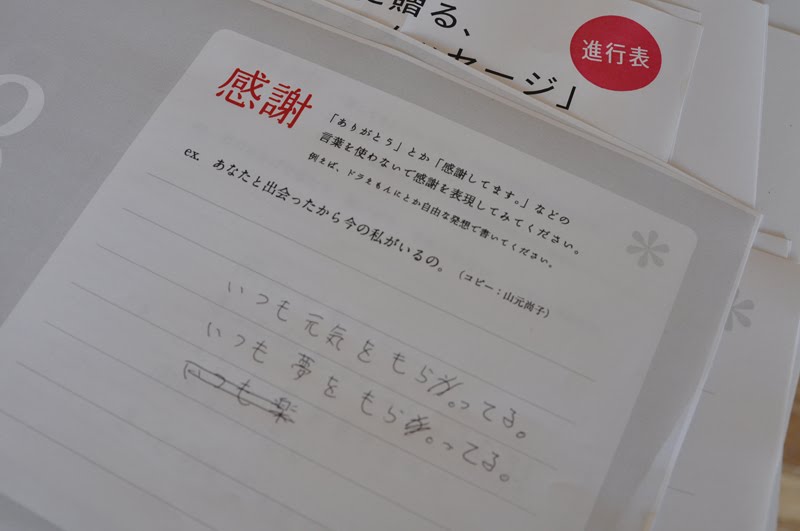 を贈る、
ッセージ」
進行表
感謝
「ありがとう」とか「感謝してます。」などの
言葉を使わないで感謝を表現してみてください。
例えば、ドラえもんにとか自由な発想で書いてください。
ex. あなたと出会ったから今の私がいるの。（コピー：山元尚子）
いつも元気をもらってる。
いつも夢をもらってる。
いつも楽